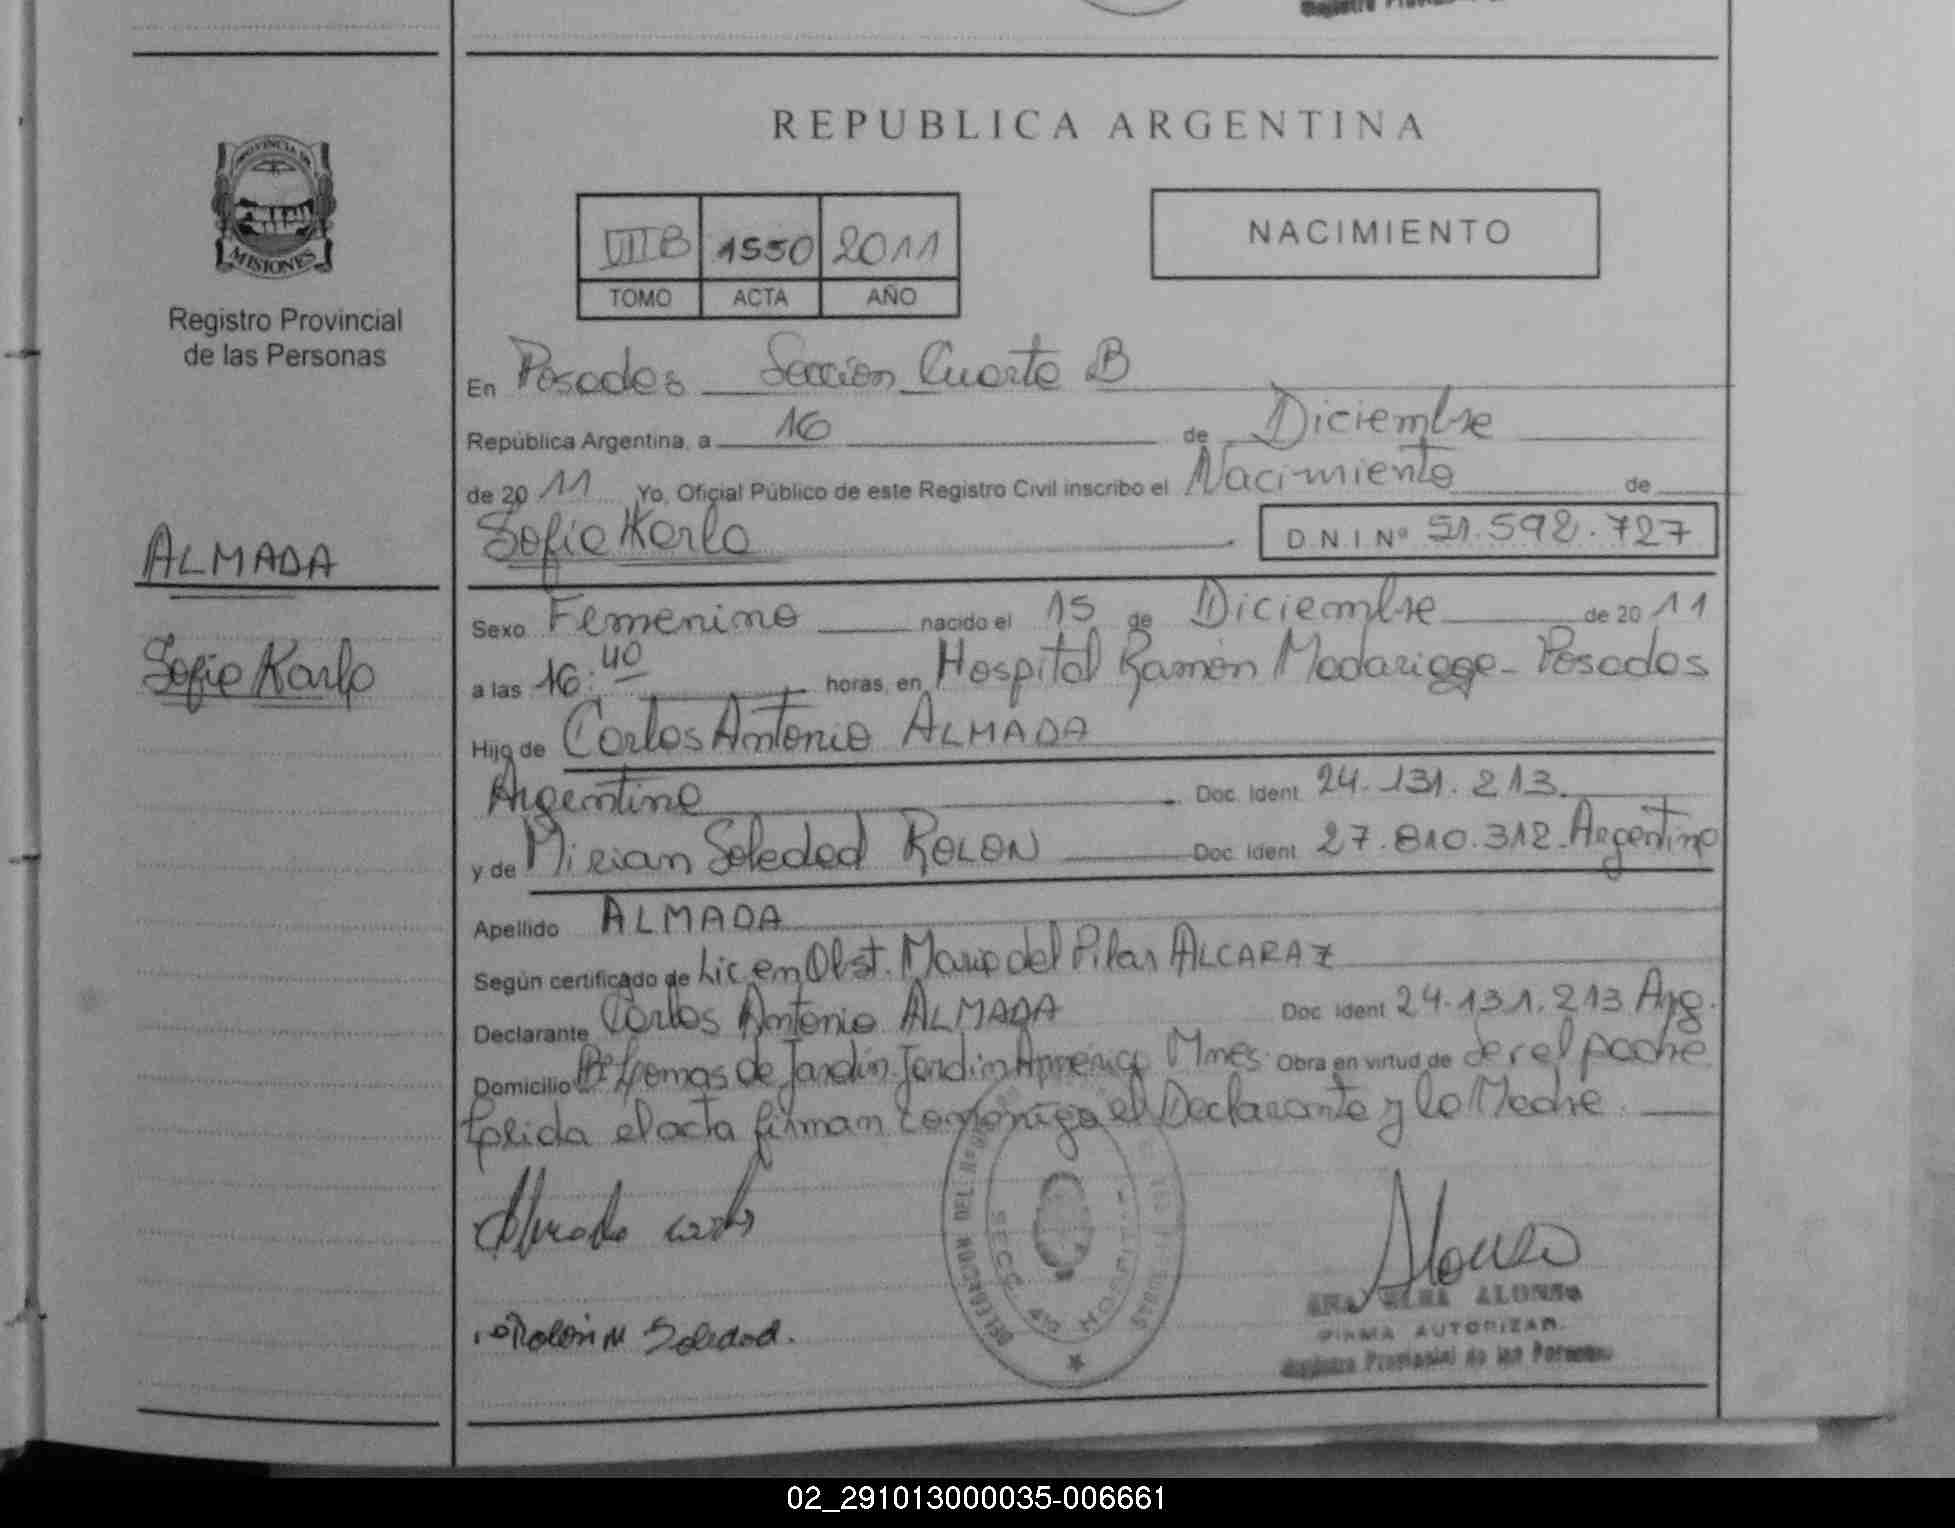 REPUBLICA ARGENTINA
PROVINCIA DE
MISIONES
Registro Provincial
de las Personas
VIII B 1550 2011
TOMO ACTA AÑO
NACIMIENTO
En Posadas Sección Cuarta B
República Argentina, a 16 de Diciembre
de 2011 Yo, Oficial Público de este Registro Civil inscribo el Nacimiento de
Sofia Karla
D.N.I. Nº 51.592.727
ALMADA
Sofia Karla
Sexo Femenino nacido el 15 de Diciembre de 2011
a las 16:40 horas, en Hospital Ramón Madariaga - Posadas
Hijo de Carlos Antonio ALMADA
Argentino Doc. Ident. 24.131.213
y de Mirian Soledad ROLON Doc. Ident. 27.810.312 Argentina
Apellido ALMADA
Según certificado de Lic. en Obst. Maria del Pilar ALCARAZ
Declarante Carlos Antonio ALMADA Doc. Ident 24.131.213 Arg.
Domicilio de Jardín Jardin América Mnes. Obra en virtud de ser el padre
Leida el acta firman conmigo el Declarante y la Madre.
Almada
Rolón M Soledad.
DELEGACION DEL
SECC. 4º
HOSPITAL
Alonso
ANA ALONSO
FIRMA AUTORIZAD.
Registro Provincial de las Personas
02_291013000035-006661